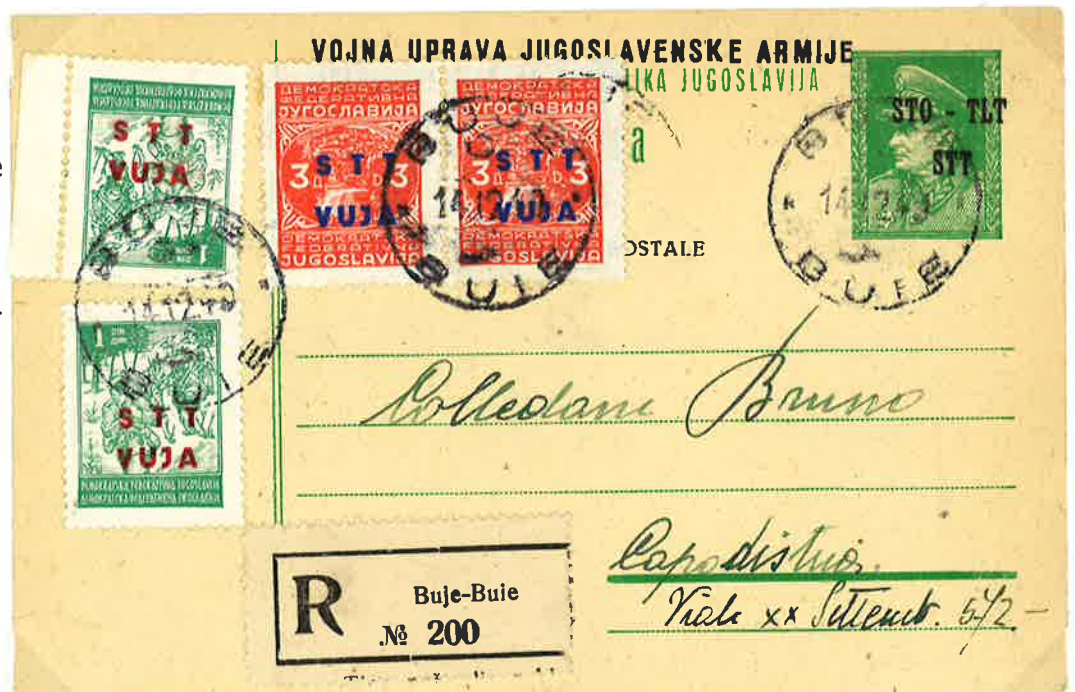 VOJNA UPRAVA JUGOSLAVENSKE ARMIJE
JUGOSLAVIJA
STO - TLT
STT
STT
VUJA
1
ДЕМОКРАТСКА
ФЕДЕРАТИВНА
ЈУГОСЛАВИЈА
STT
3 3
VUJA
DEMOKRATSKA
FEDERATIVNA
JUGOSLAVIJA
ДЕМОКРАТСКА
ФЕДЕРАТИВНА
ЈУГОСЛАВИЈА
STT
3 D 3
VUJA
DEMOKRATSKA
FEDERATIVNA
JUGOSLAVIJA
BUJE
14.12.49
BUIE
BUJE
14.12.49
BUIE
BUJE
14.12.49
BUIE
OSTALE
1
STT
VUJA
Colledani Bruno
Capodistria
Viale XX Settemb. 572-
R
Buje-Buie
№ 200